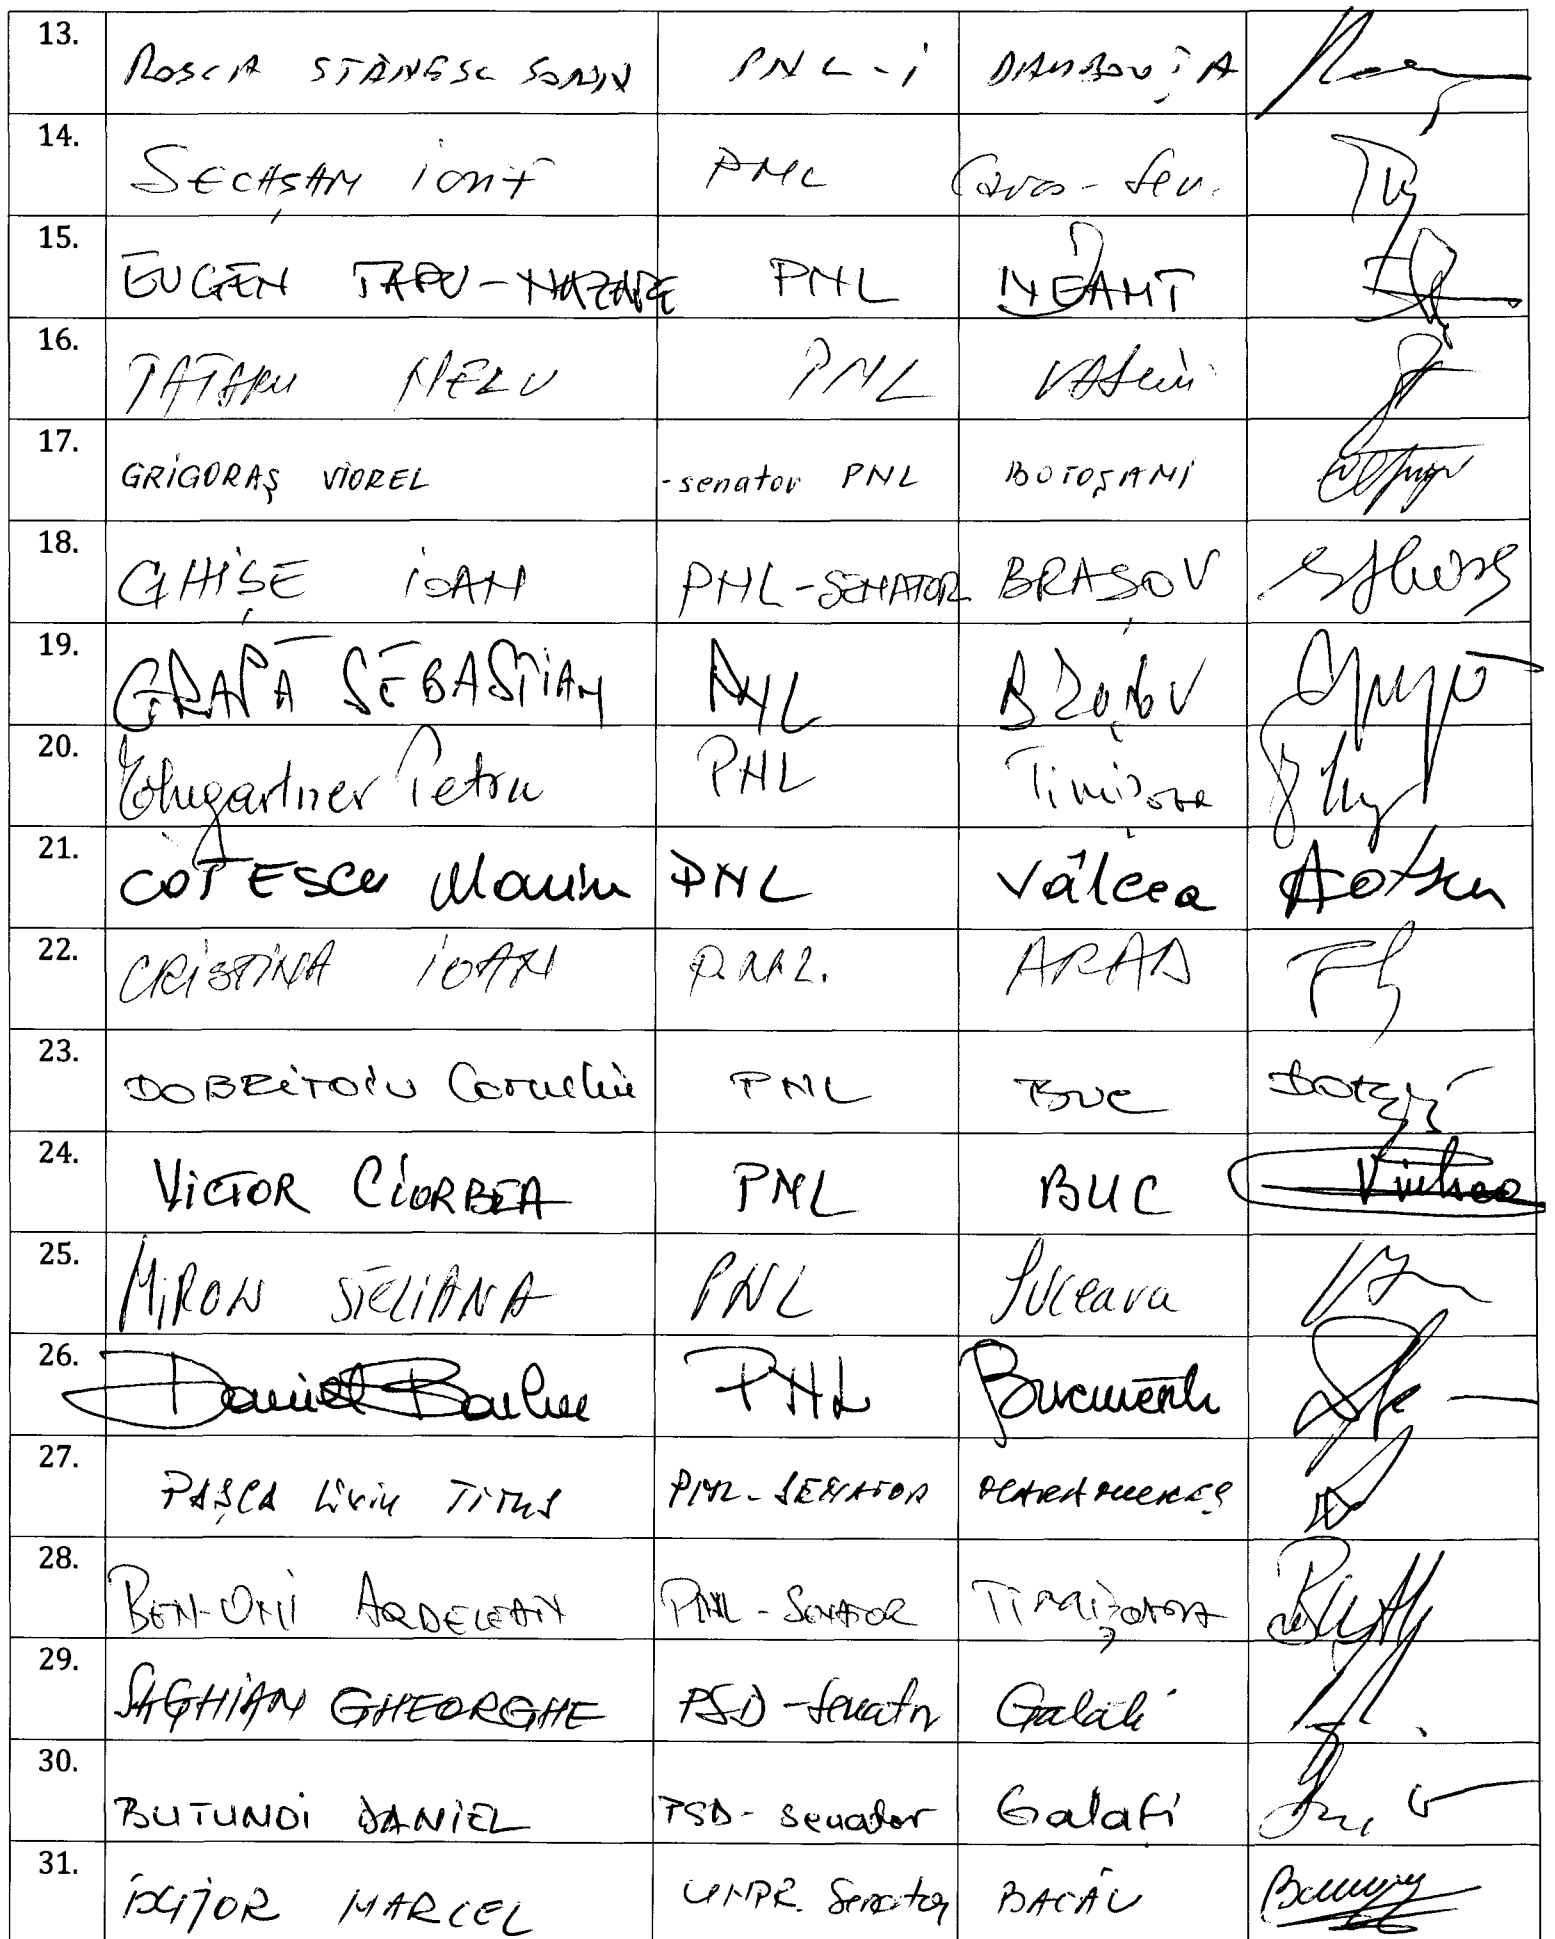 13. ROSCA STĂNESC SORIN PNL-i DAMBOVIȚA
14. SECAȘAN IONŢ PNL Caras-Sev.
15. EUGEN TAPU-NAZARE PNL NEAMT
16. TATARU NELU PNL VASLUI
17. GRIGORAȘ VIOREL -senator PNL BOTOȘANI
18. GHIȘE IOAN PNL-SENATOR BRAȘOV
19. GRAPĂ SEBASTIAN PNL BRAȘOV
20. Ehegartner Petru PNL Timișoara
21. COTESCU Marin PNL Vâlcea
22. CRISTINA IOAN P.N.L. ARAD
23. DOBRITOIU Corneliu PNL BUC
24. VICTOR CIORBEA PNL BUC
25. MIRON STELIANA PNL Suceava
26. Daniel Barbu PNL Bucuresti
27. PAȘCA Liviu TITUS PNL-SENATOR MARAMUREȘ
28. BEN-ONI ARDELEAN PNL-SENATOR TIMIȘOARA
29. SAGHIAN GHEORGHE PSD-Senator Galati
30. BUTUNOI DANIEL PSD-Senator Galați
31. BUJOR MARCEL UNPR Senator BACĂU